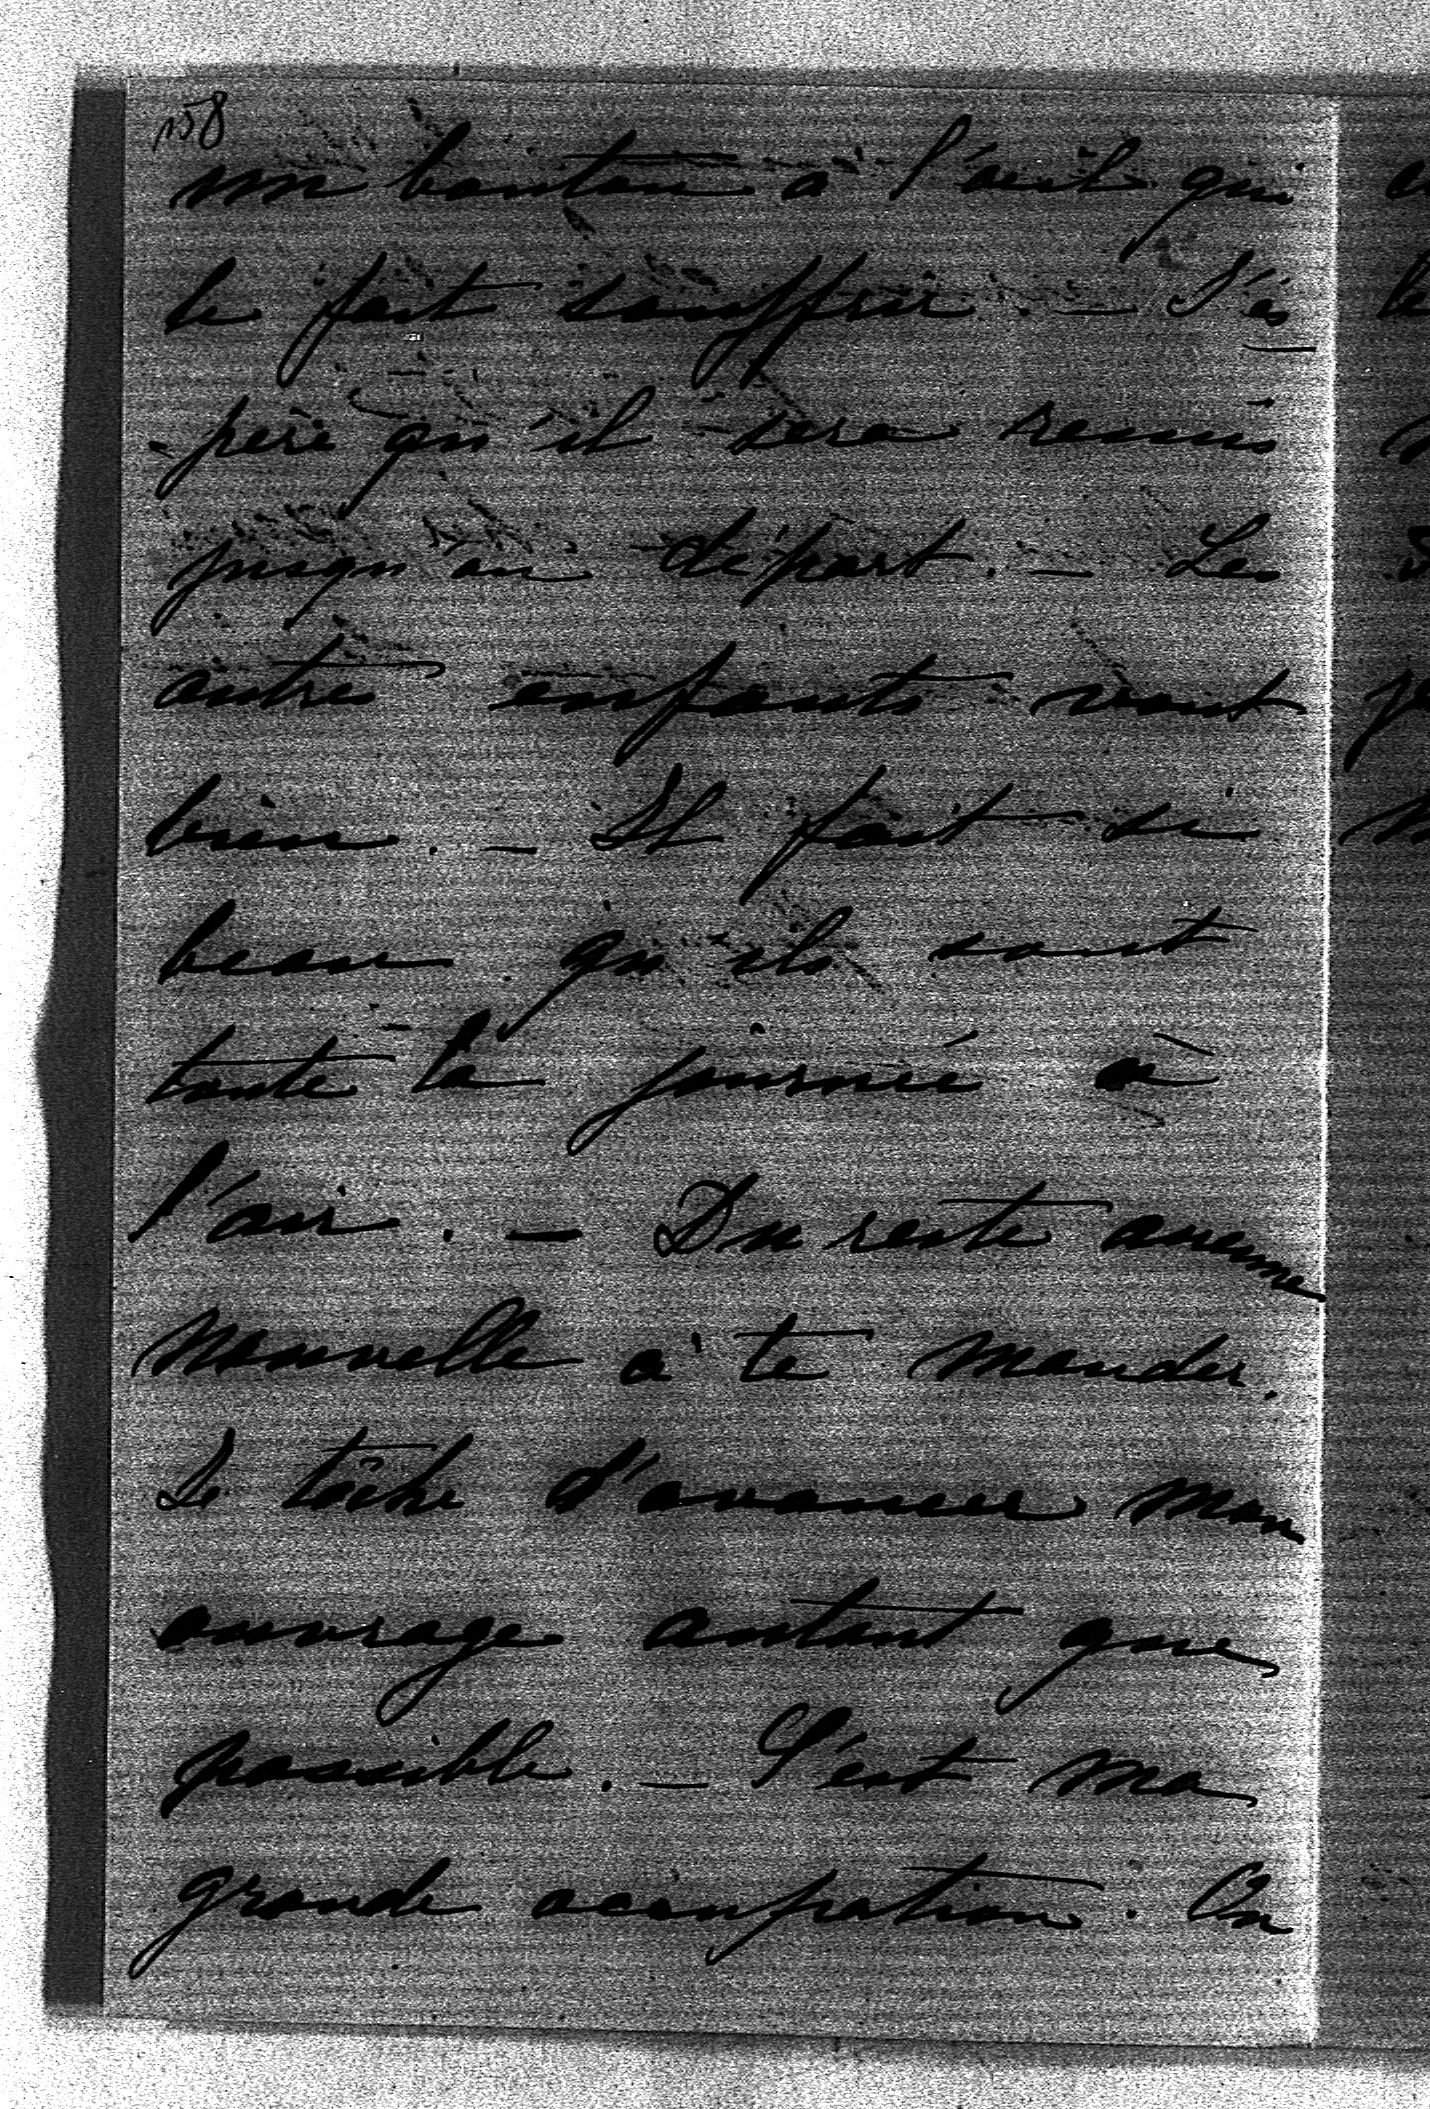 158
un bouton à l'œil qui
le fait souffrir. — J'es
père qu'il sera remis
jusqu'au départ. — Les
autres enfants vont
bien. — Il fait si
beau qu'ils sont
toute la journée à
l'air. — Du reste aucune
nouvelle à te mander.
Je tâche d'avancer mon
ouvrage autant que
possible. — C'est ma
grande occupation. On